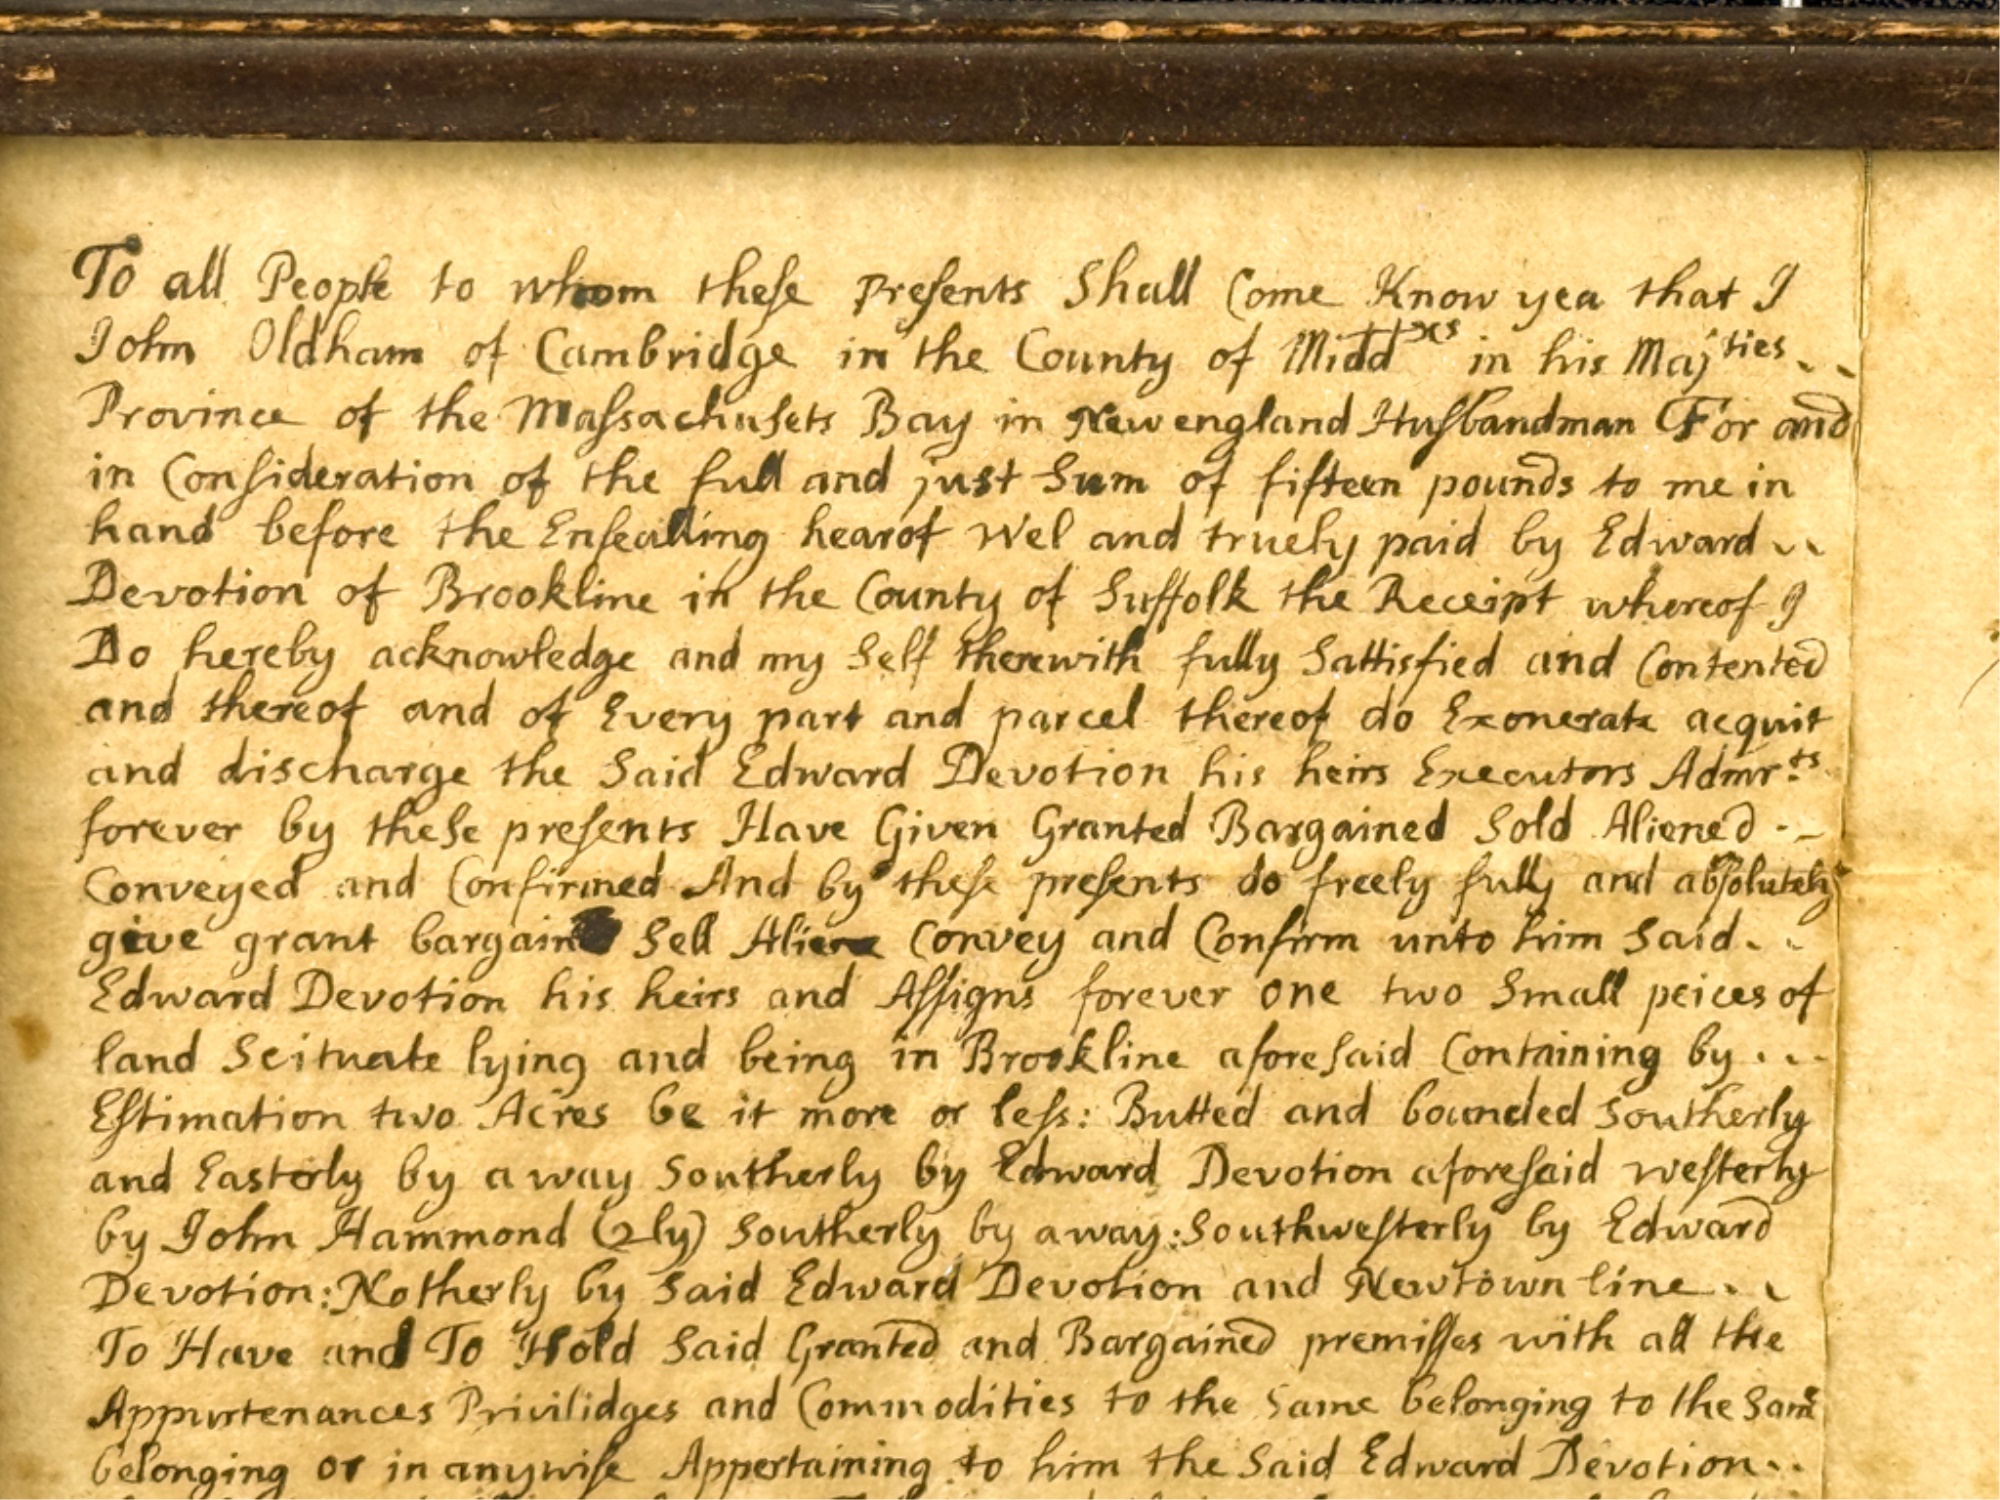 To all People to whom these presents Shall Come Know yea that I
John Oldham of Cambridge in the County of Middxes in his Majties
Province of the Massachusets Bay in New england Husbandman For and
in Consideration of the full and just Sum of fifteen pounds to me in
hand before the Ensealling hearof Wel and truely paid by Edward
Devotion of Brookline in the County of Suffolk the Receipt whereof I
Do hereby acknowledge and my Self therewith fully Sattisfied and Contented
and thereof and of Every part and parcel thereof do Exonerate acquit
and discharge the Said Edward Devotion his heirs Executors Admr.ts
forever by these presents Have Given Granted Bargained Sold Aliened
Conveyed and Confirmed And by these presents do freely fully and absolutely
give grant bargain Sell Aliene Convey and Confirm unto him Said
Edward Devotion his heirs and Assigns forever one two Small peices of
land Scituate lying and being in Brookline aforesaid Containing by
Estimation two Acres be it more or less: Butted and bounded Southerly
and Easterly by a way Southerly by Edward Devotion aforesaid westerly
by John Hammond (2ly) Southerly by a way: Southwesterly by Edward
Devotion: Notherly by Said Edward Devotion and Newtown line
To Have and To Hold Said Granted and Bargained premisses with all the
Appurtenances Privilidges and Commodities to the Same belonging to the Same
belonging or in anywise Appertaining to him the Said Edward Devotion